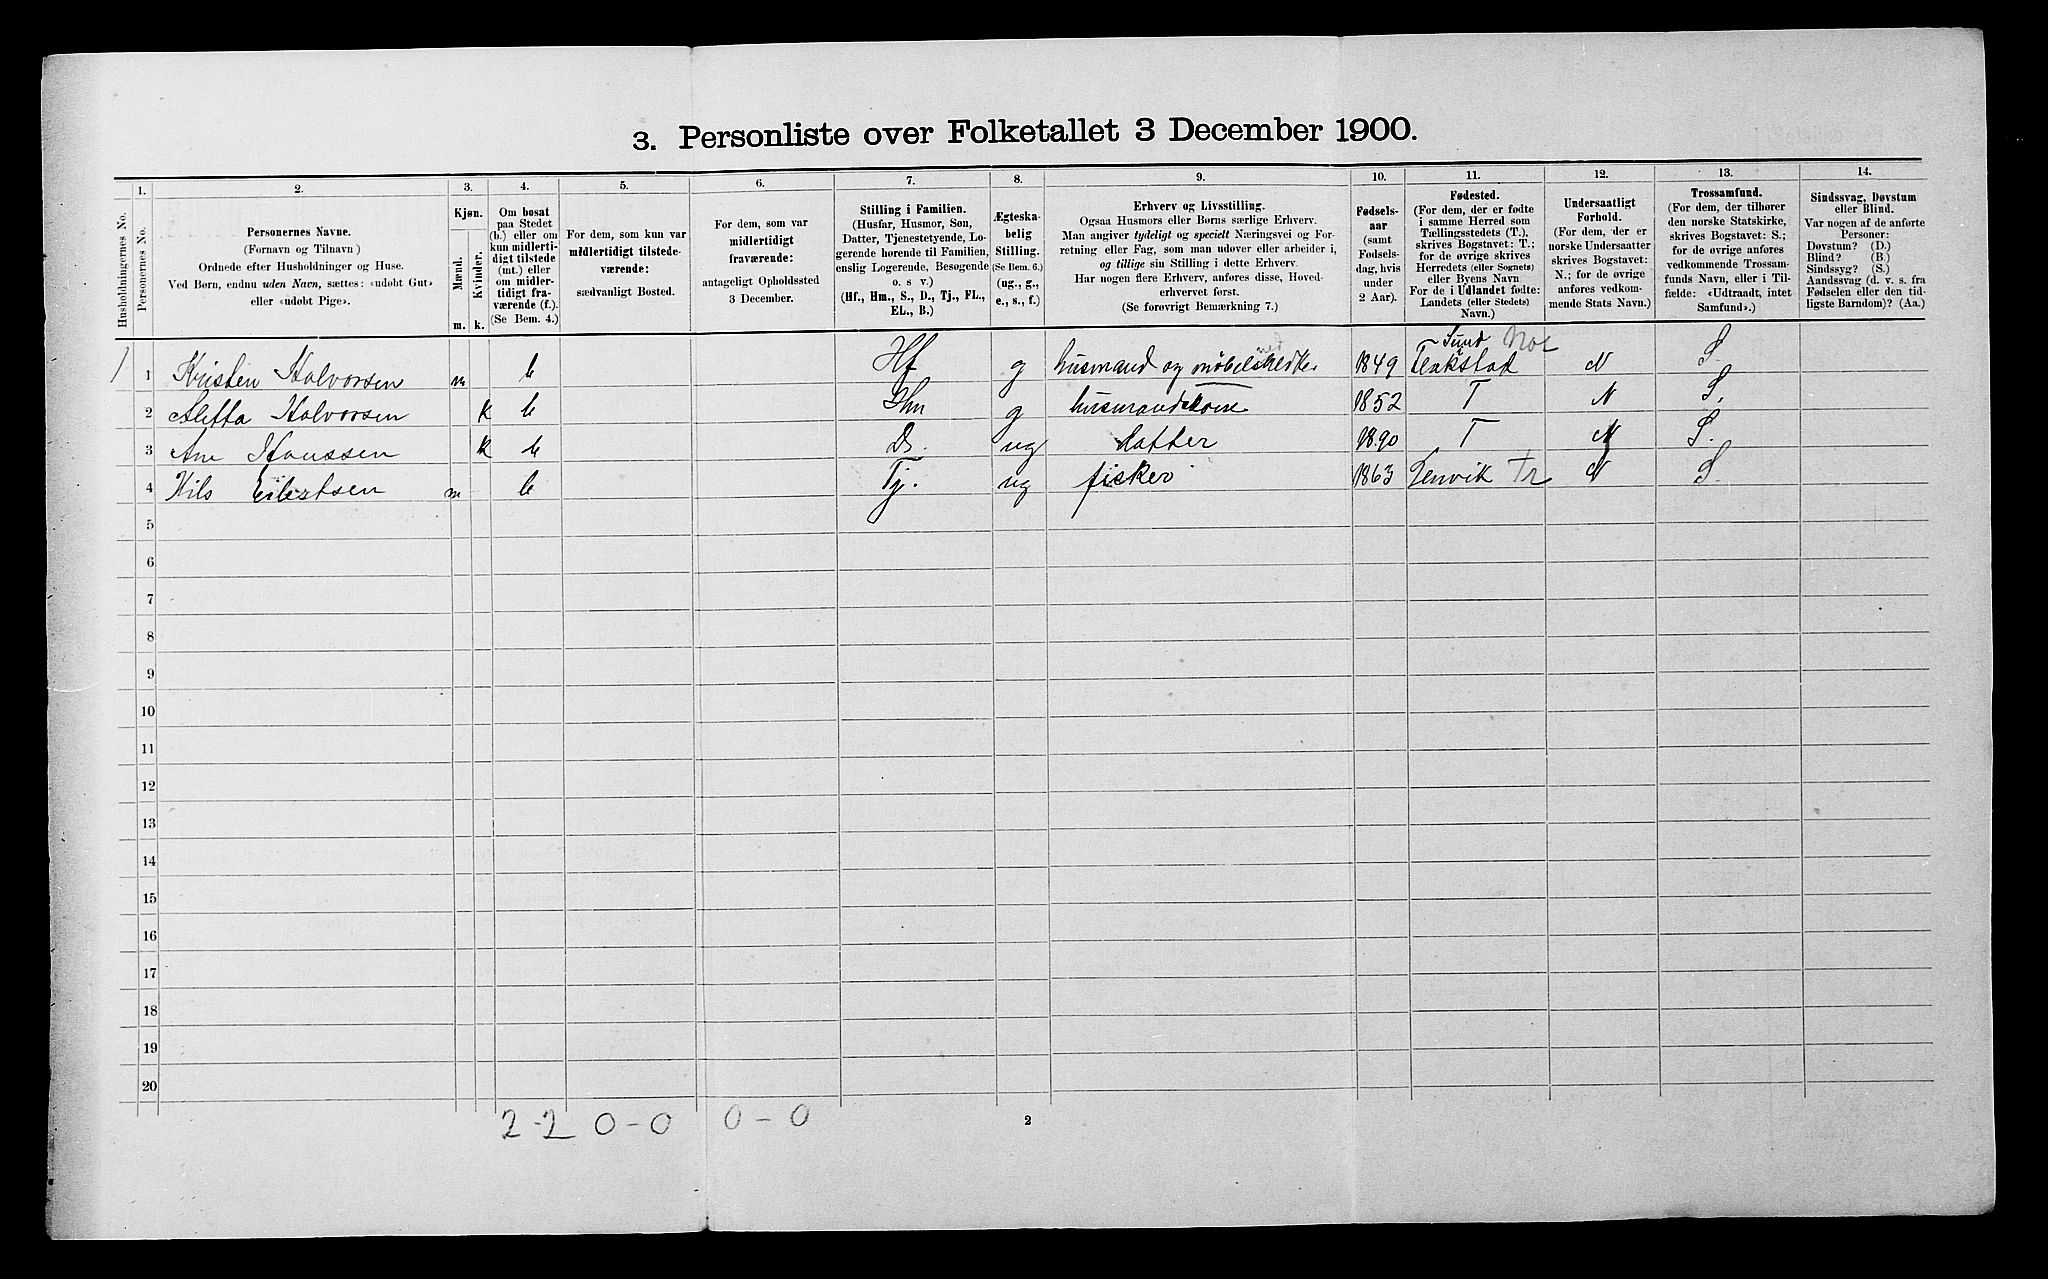 3. Personliste over Folketallet 3 December 1900.
1. 2. 3. 4. 5. 6. 7. 8. 9. 10. 11. 12. 13. 14.
Husholdningernes No.
Personernes No.
Personernes Navne.
(Fornavn og Tilnavn)
Ordnede efter Husholdninger og Huse.
Ved Børn, endnu uden Navn, sættes: «udøbt Gut»
eller «udøbt Pige».
Kjøn.
Mænd.
Kvinder.
m. k.
Om bosat
paa Stedet
(b.) eller om
kun midlerti-
digt tilstede
(mt.) eller
om midler-
tidigt fra-
værende (f.).
(Se Bem. 4.)
For dem, som kun var
midlertidigt tilstede-
værende:
sædvanligt Bosted.
For dem, som var
midlertidigt
fraværende:
antageligt Opholdssted
3 December.
Stilling i Familien.
(Husfar, Husmor, Søn,
Datter, Tjenestetyende, Lo-
gerende hørende til Familien,
enslig Logerende, Besøgende
o. s v.)
(Hf., Hm., S., D., Tj., FL.,
EL., B.)
Ægteska-
belig
Stilling.
(Se Bem. 6.)
(ug., g.,
e., s., f.)
Erhverv og Livsstilling.
Ogsaa Husmors eller Børns særlige Erhverv.
Man angiver tydeligt og specielt Næringsvei og For-
retning eller Fag, som man udøver eller arbeider i,
og tillige sin Stilling i dette Erhverv.
Har nogen flere Erhverv, anføres disse, Hoved-
erhvervet først.
(Se forøvrigt Bemærkning 7.)
Fødsels-
aar
(samt
Fødsels-
dag, hvis
under
2 Aar).
Fødested.
(For dem, der er fødte
i samme Herred som
Tællingsstedets (T.),
skrives Bogstavet: T.;
for de øvrige skrives
Herredets (eller Sognets)
eller Byens Navn
For de i Udlandet fødte:
Landets (eller Stedets)
Navn.)
Undersaatligt
Forhold.
(For dem, der er
norske Undersaatter
skrives Bogstavet:
N.; for de øvrige
anføres vedkom-
mende Stats Navn.)
Trossamfund.
(For dem, der tilhører
den norske Statskirke,
skrives Bogstavet: S.;
for de øvrige anføres
vedkommende Trossam-
funds Navn, eller i Til-
fælde: «Udtraadt, intet
Samfund».)
Sindssvag, Døvstum
eller Blind.
Var nogen af de anførte
Personer:
Døvstum? (D.)
Blind? (B.)
Sindssyg? (S.)
Aandssvag (d. v. s. fra
Fødselen eller den tid-
ligste Barndom)? (Aa.)
1 1 Kristen Halvorsen m b Hf g husmand og 1849 N S.
2 Aletta Halvorsen k b Hm g husmandskone 1852 T N S.
3 Ane Hanssen k b D. ug datter 1890 T N S.
4 Nils Eilertsen m b Tj. ug fisker 1863 Lenvik Tr N S.
5
6
7
8
9
10
11
12
13
14
15
16
17
18
19
20
2-2 0-0 0-0 2